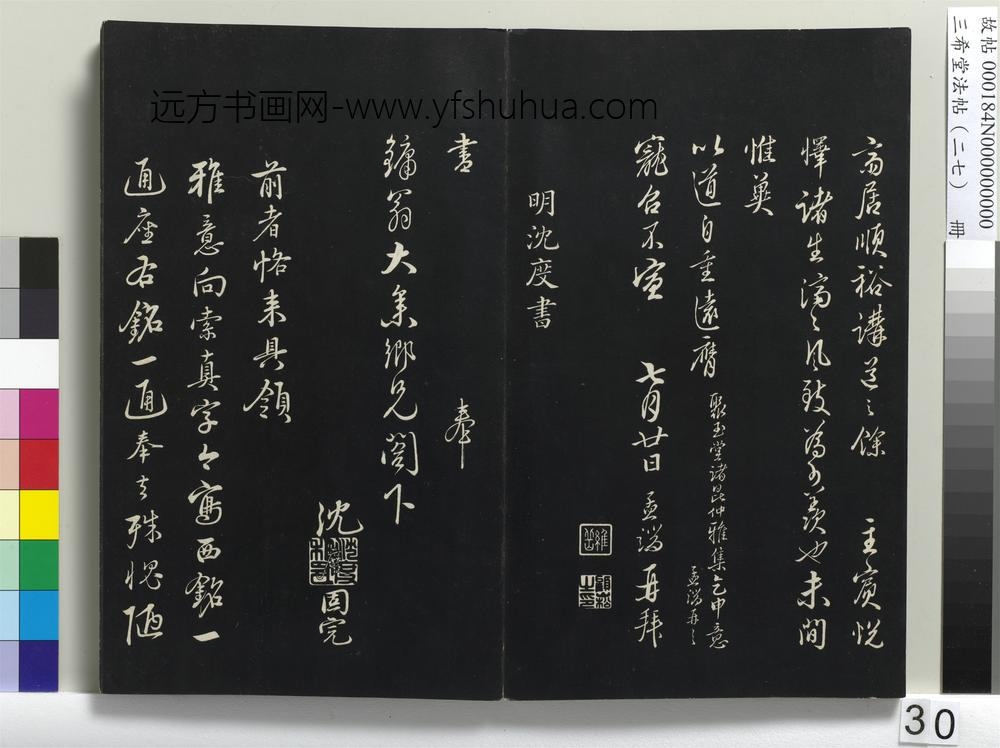 高居順裕講道之餘 主賓悅
懌諸生濟之風致為可羨也未間
惟冀
以道自重遠膺
聚玉堂諸昆仲雅集乞申意
孟端再之
寵召不宣 七月廿日 孟端再拜
明沈度書
書 奉
鏞翁大參鄉兄閣下
沈 固完
前者恪來具領
雅意向索真字今寫西銘一
通座右銘一通奉去殊愧陋
远方书画网-www.yfshuhua.com
故帖 000184N000000000
三希堂法帖(二七) 冊
30